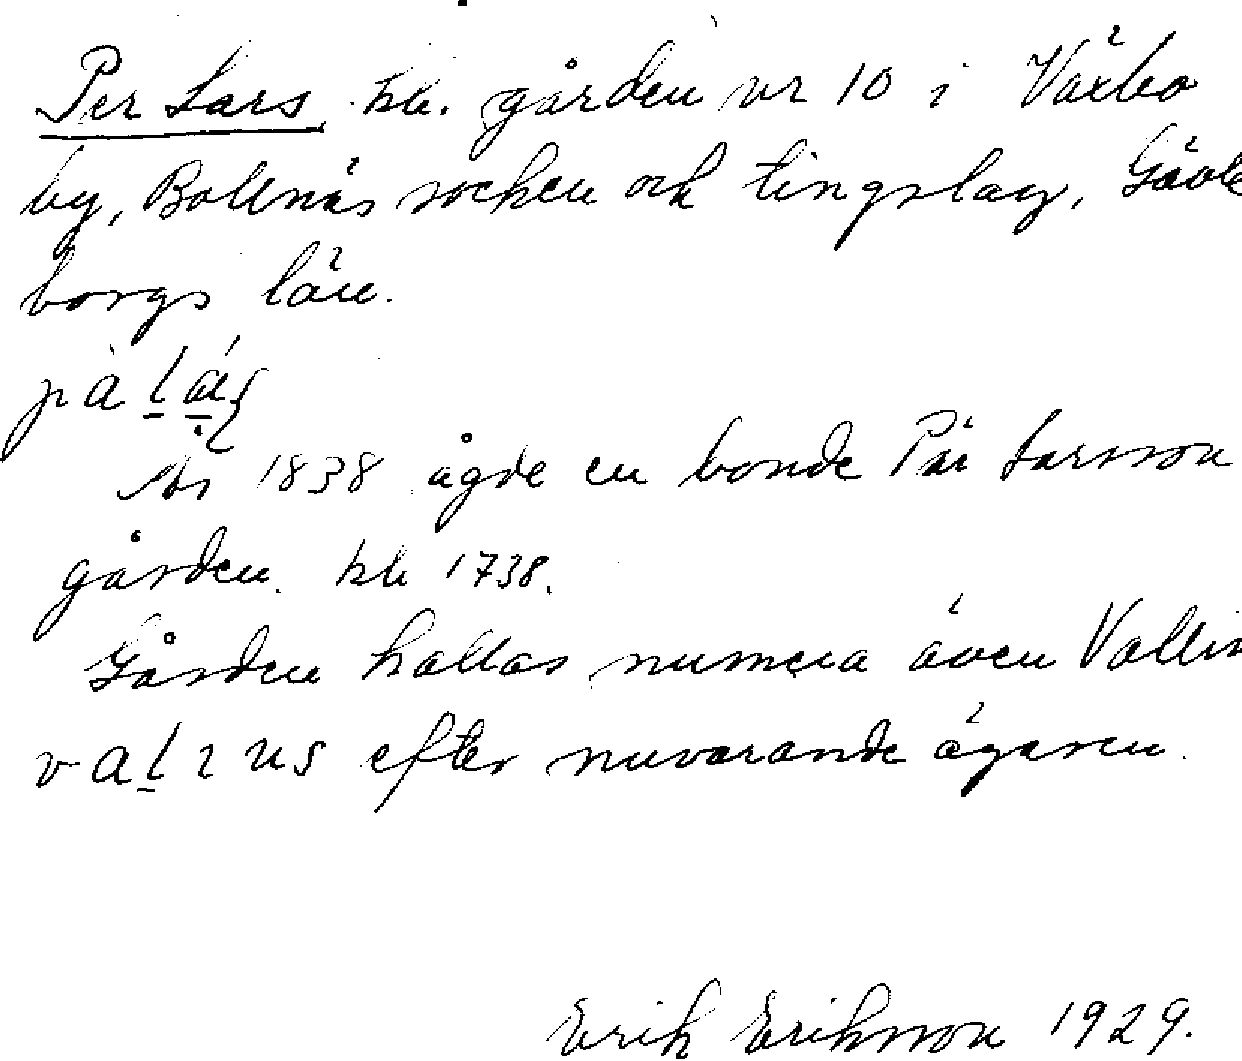 Per Lars, hb. gården nr 10 i Växbo
by, Bollnäs socken och tingslag, Gävle
borgs län.
År 1838 ägde en bonde Pär Larsson
gården. hb 1738.
Gården kallas numera även Vallin
efter nuvarande ägaren.
Erik Eriksson 1929.